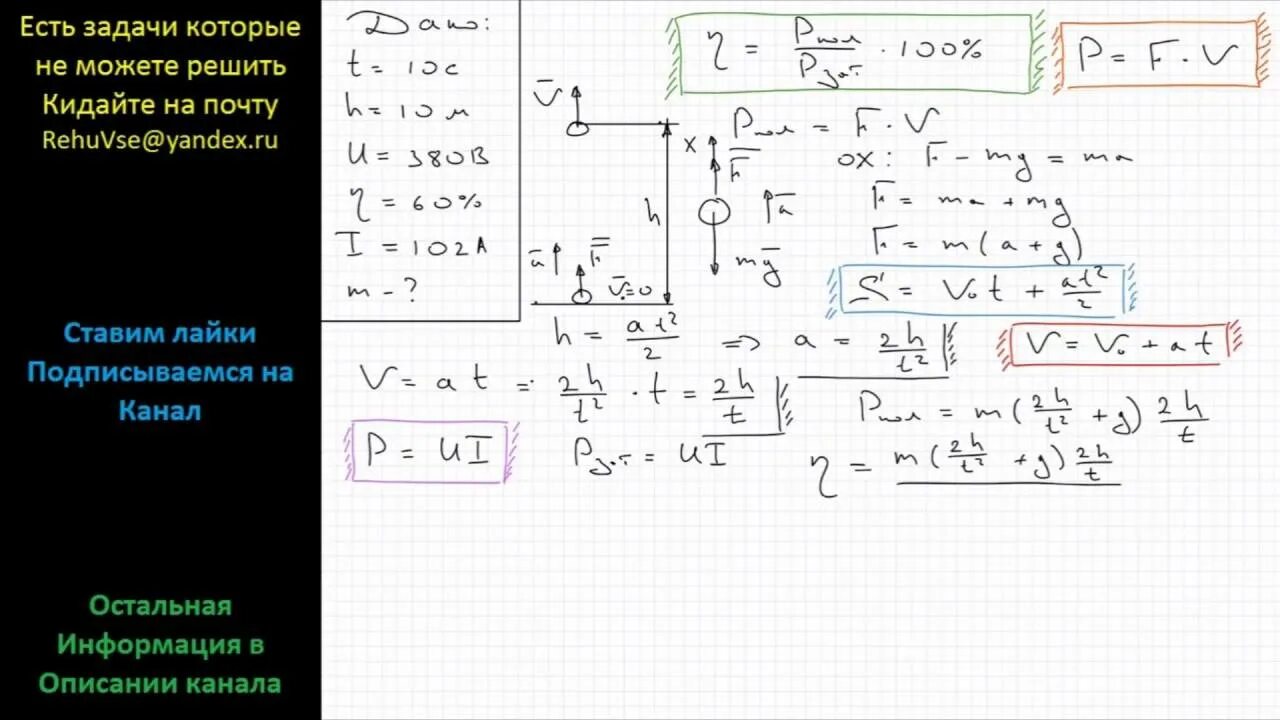 Есть задачи которые
не можете решить
Кидайте на почту
RehuVse@yandex.ru
Ставим лайки
Подписываемся на
Канал
Остальная
Информация в
Описании канала
Дано:
t = 10с
h = 10 м
U = 380В
η = 60%
I = 102А
m - ?
V̄
h
ā F̄ V̄₀=0
x
F̄
ā
mḡ
η = Pпол / Pзат · 100%
P = F · V
Pпол = F · V
ox: F - mg = ma
F = ma + mg
F = m(a + g)
S = V₀t + at²/2
h = at²/2 => a = 2h/t²
V = V₀ + at
V = at = 2h/t² · t = 2h/t
Pпол = m(2h/t² + g) 2h/t
P = UI
Pзат = UI
η = m(2h/t² + g) 2h/t